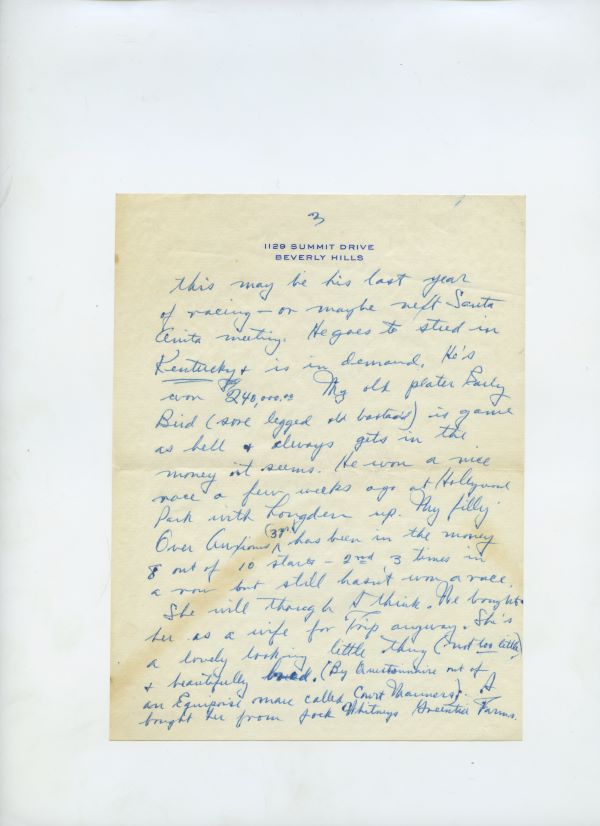 3
1129 SUMMIT DRIVE
BEVERLY HILLS
this may be his last year
of racing – or maybe next Santa
Anita meeting. He goes to stud in
Kentucky + is in demand. He's
won $240,000.00 My old plater Early
Bird (sore legged old bastard) is game
as hell + always gets in the
money it seems. He won a nice
race a few weeks ago at Hollywood
Park with Longden up. My filly
Over Anxious (3yr) has been in the money
8 out of 10 starts – 2nd 3 times in
a row but still hasn't won a race.
She will though I think. We bought
her as a wife for Trip anyway. She's
a lovely looking little thing (not too little)
+ beautifully bred. (By Questionnaire out of
an Equipoise mare called Court Manners). I
bought her from Jock Whitneys Greentree Farms.